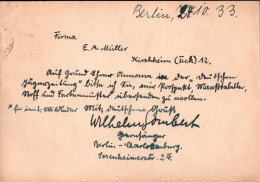 Berlin, 27.10.33.
Firma
E. A. Müller
Kirchheim (Teck) 12.
Auf Grund Ihrer Annonce in der „Deutschen
Jägerzeitung" bitte ich Sie, mir Prospekt, Maßtabelle,
Stoff und Farbenmuster übersenden zu wollen.
Mit deutschem Gruß
Wilhelm
Berlin-Charlottenburg,
Sesenheimerstr. 27